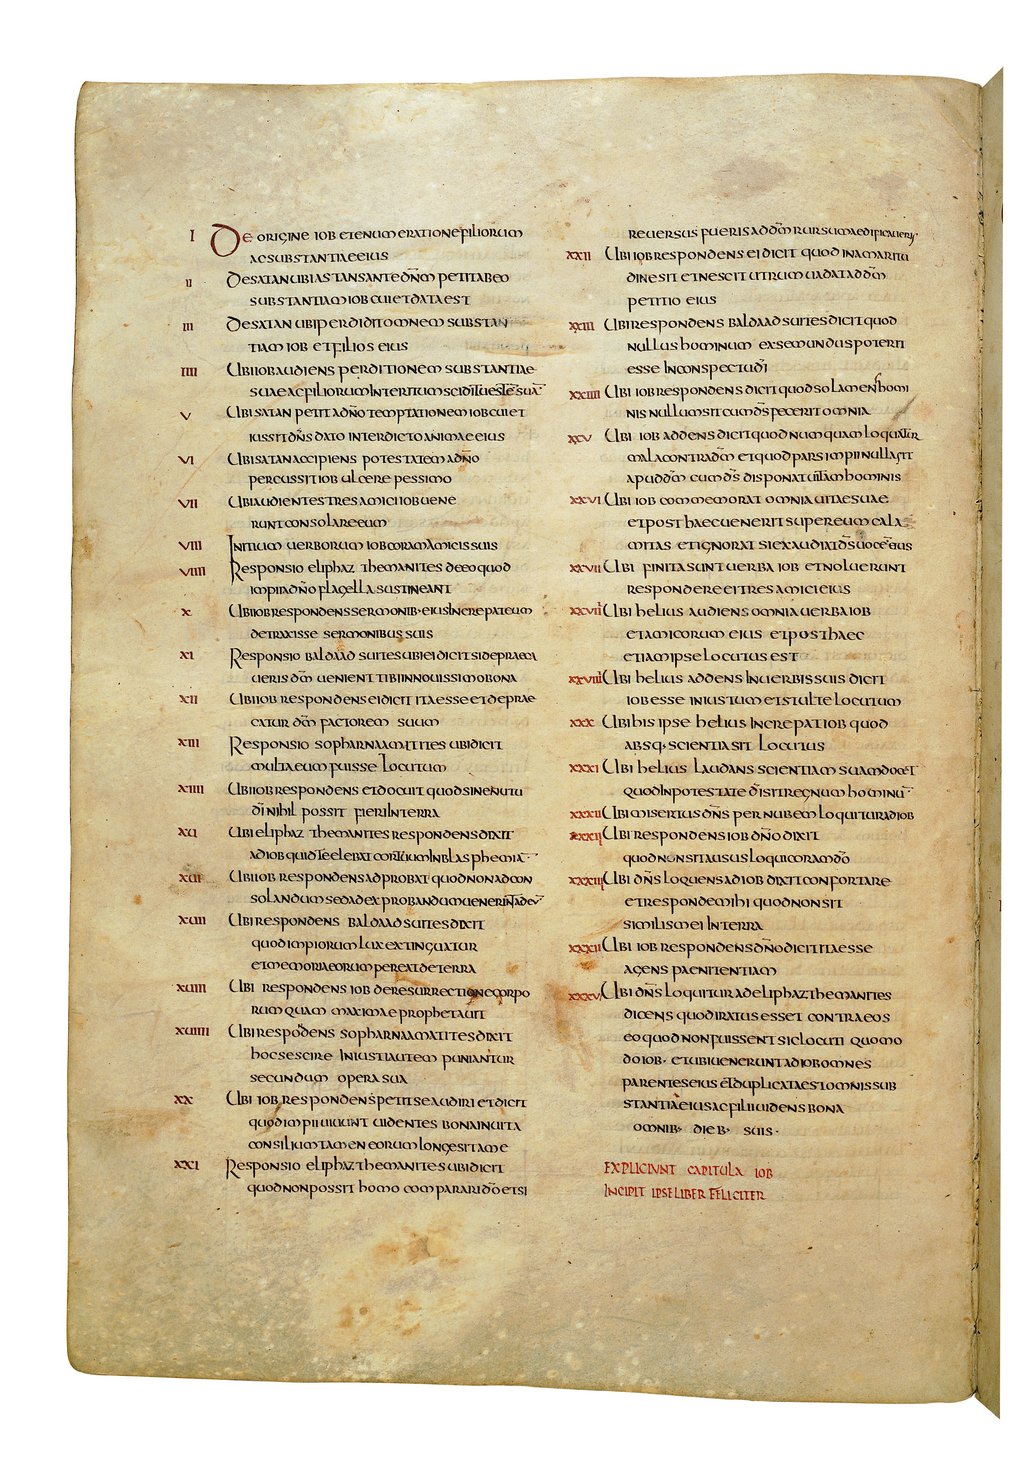 I De origine iob et enumeratione filiorum
ac substantiae eius
II De satan ubi astans ante dn̄m petit ab eo
substantiam iob cui et data est
III De satan ubi perdidit omnem substan
tiam iob et filios eius
IIII Ubi iob audiens perditionem substantiae
suae ac filiorum interitum scidit uestē suā
V Ubi satan petit a dn̄o temptationem iob cui et
iussit dn̄s dato interdicto animae eius
VI Ubi satan accipiens potestatem a dn̄o
percussit iob ulcere pessimo
VII Ubi audientes tres amici iob uene
runt consolare eum
VIII Initium uerborum iob coram amicis suis
VIIII Responsio eliphaz themanites de eo quod
impii a dn̄o flagella sustineant
X Ubi iob respondens sermonib· eius increpat eum
detraxisse sermonibus suis
XI Responsio baldad suites ubi ei dicit si depraeca
ueris dm̄ uenient tibi in nouissimo bona
XII Ubi iob respondens ei dicit ita esse et deprae
catur dm̄ factorem suum
XIII Responsio sophar naamatites ubi dicit
multa eum fuisse locutum
XIIII Ubi iob respondens et docuit quod sine nutu
dī nihil possit fieri in terra
XV Ubi eliphaz themanites respondens dixit
ad iob quid te eleuat cor tuum in blasphemiā
XVI Ubi iob respondens ad probat quod non ad con
solandum sed ad exprobandum uenerint ad eū
XVII Ubi respondens baldad suites dixit
quod impiorum lux extinguatur
et memoria eorum pereat de terra
XVIII Ubi respondens iob de resurrectione corpo
rum quam maximae prophetauit
XVIIII Ubi respodens sophar naamatites dixit
hoc se scire iniusti autem puniantur
secundum opera sua
XX Ubi iob respondens petit se audiri et dicit
quod impii uiuunt uidentes bona in uita
consilium tamen eorum longe sit a me
XXI Responsio eliphaz themanites ubi dicit
quod non possit homo comparari dō etsi
reuersus fueris ad dm̄ rursum aedificaueris
XXII Ubi iob respondens ei dicit quod in amaritu
dine sit et nescit utrum uadat ad dm̄
petitio eius
XXIII Ubi respondens baldad suites dicit quod
nullus hominum ex se mundus poterit
esse in conspectu dī
XXIIII Ubi iob respondens dicit quod solamen homi
nis nullum sit cum ds̄ fecerit omnia
XXV Ubi iob addens dicit quod numquam loquatur
mala contra dm̄ et quod pars impii nulla sit
apud dm̄ cum ds̄ disponat uitam hominis
XXVI Ubi iob commemorat omnia uitae suae
et post haec uenerit super eum cala
mitas et ignorat si exaudiat ds̄ uocē eius
XXVII Ubi finita sunt uerba iob et noluerunt
respondere ei tres amici eius
XXVIII Ubi helius audiens omnia uerba iob
et amicorum eius et post haec
etiam ipse locutus est
XXVIIII Ubi helius addens in uerbis suis dicit
iob esse iniustum et stulte locutum
XXX Ubi his ipse helius increpat iob quod
absq· scientia sit locutus
XXXI Ubi helius laudans scientiam suam docet
quod in potestate dī sit regnum hominū
XXXII Ubi misertus dn̄s per nubem loquitur ad iob
XXXII Ubi respondens iob dn̄o dixit
quod non sit ausus loqui coram dō
XXXIII Ubi dn̄s loquens ad iob dixit confortare
et responde mihi quod non sit
similis mei in terra
XXXIIII Ubi iob respondens dn̄o dicit ita esse
agens paenitentiam
XXXV Ubi dn̄s loquitur ad eliphaz themanites
dicens quod iratus esset contra eos
eo quod non fuissent sic locuti quomo
do iob· et ubi uenerunt ad iob omnes
parentes eius et duplicata est omnis sub
stantia eius ac filii uidens bona
omnib· dieb· suis·
EXPLICIUNT CAPITULA IOB
INCIPIT IPSE LIBER FELICITER